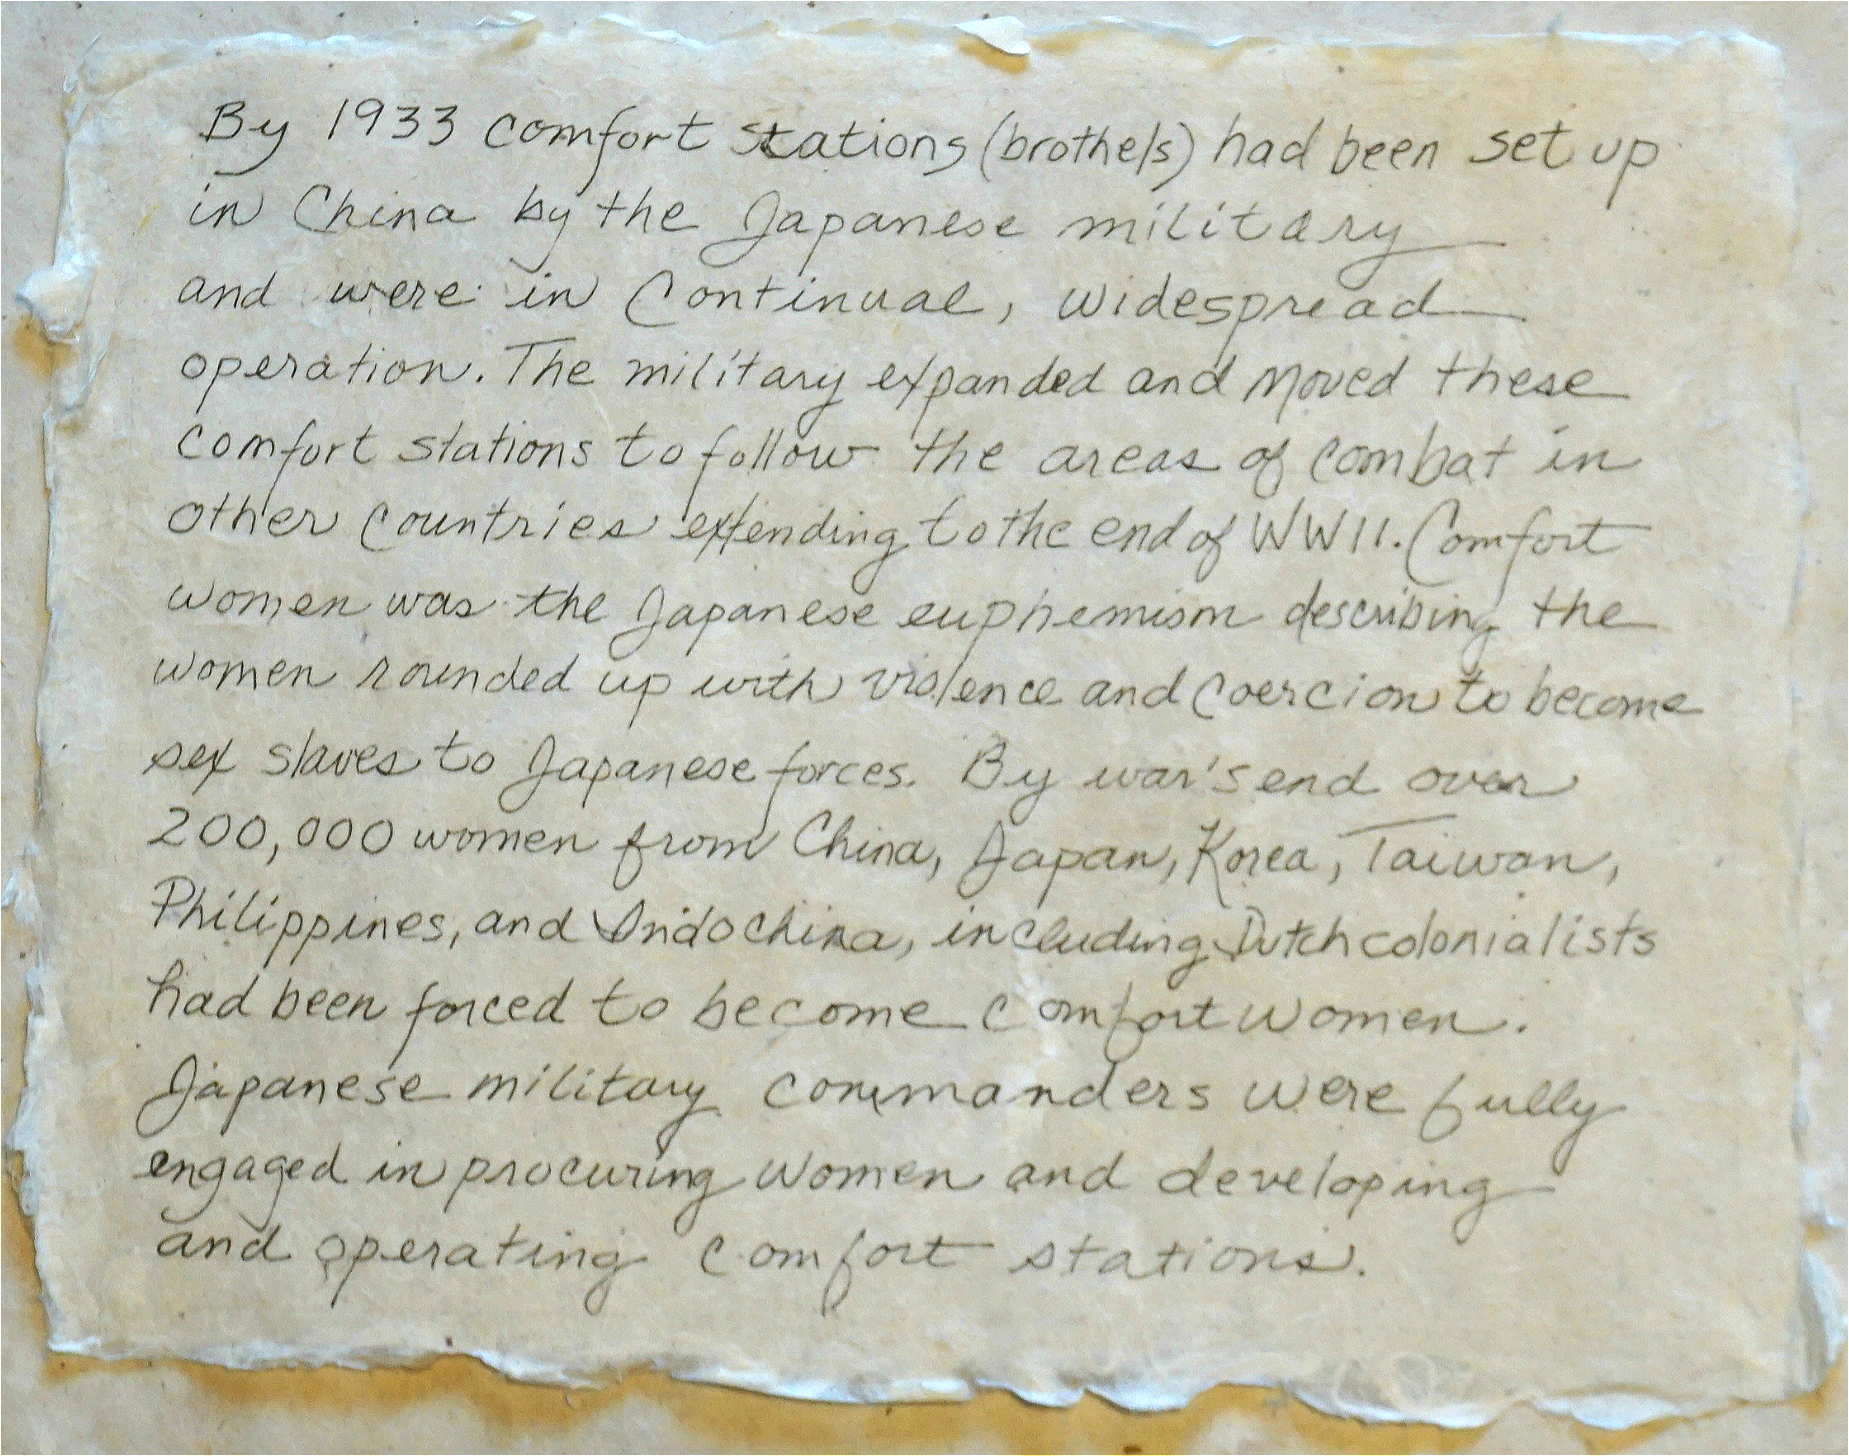 By 1933 comfort stations (brothels) had been set up
in China by the Japanese military
and were in Continual, widespread
operation. The military expanded and moved these
comfort stations to follow the areas of combat in
other countries extending to the end of WWII. Comfort
women was the Japanese euphemism describing the
women rounded up with violence and coercion to become
sex slaves to Japanese forces. By war's end over
200,000 women from China, Japan, Korea, Taiwan,
Philippines, and Indochina, including Dutch colonialists
had been forced to become comfort women.
Japanese military commanders were fully
engaged in procuring women and developing
and operating comfort stations.